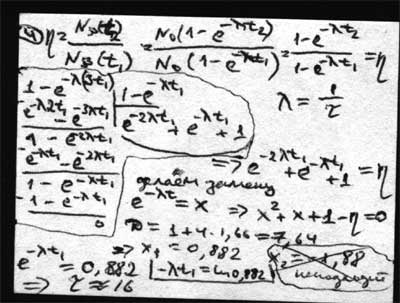 ④ η = N_{зо}(t_2) / N_{зз}(t_1) = N_0(1-e^{-λt_2}) / N_0(1-e^{-λt_1}) = 1-e^{-λt_2} / 1-e^{-λt_1} = η
λ = 1/τ
1-e^{-λ(3t_1)} | 1-e^{-λt_1}
e^{-λ2t_1} - e^{-3λt_1} | e^{-2λt_1} + e^{-λt_1} + 1
1-e^{-2λt_1}
e^{-λt_1} - e^{-2λt_1}
1-e^{-λt_1}
1-e^{-λt_1}
0
⇒ e^{-2λt_1} + e^{-λt_1} + 1 = η
делаем замену
e^{-λt_1} = x ⇒ x² + x + 1 - η = 0
D = 1 + 4·1,66 = 7,64
⇒ x_1 = 0,882
x_2 = -1,88
неподходит
e^{-λt_1} = 0,882
-λt_1 = ln 0,882
⇒ τ ≈ 16